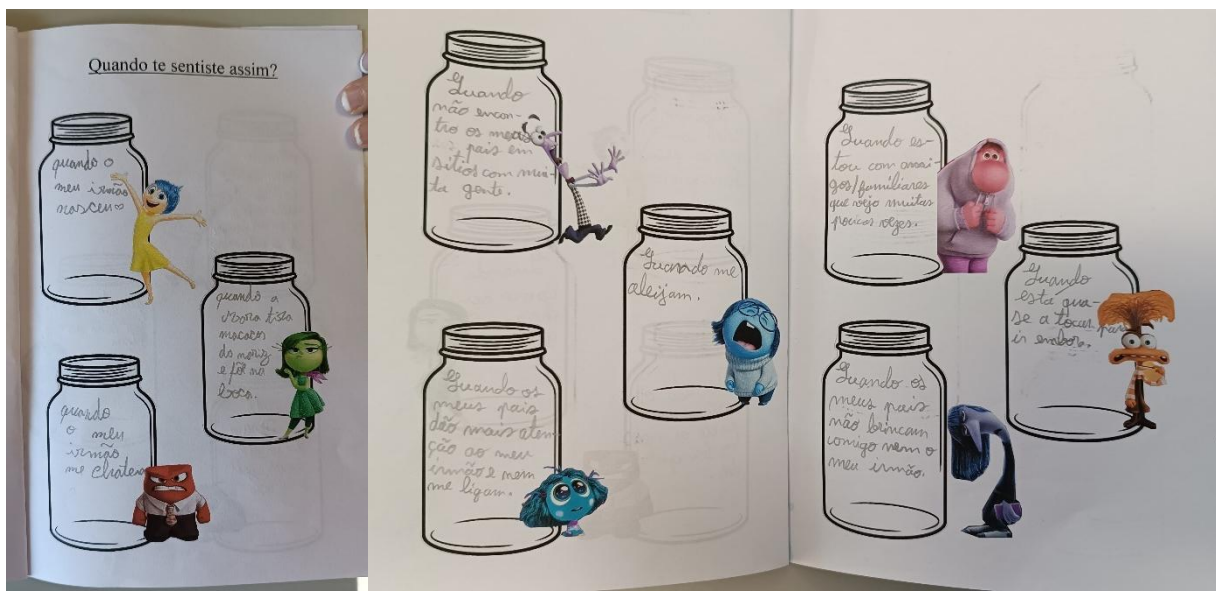 Quando te sentiste assim?
quando o
meu irmão
nasceu
quando a
tira
macacos
do nariz
e põe na
boca.
quando
o meu
irmão
me chateia
Quando
não encon-
tro os meus
pais em
sítios com mui-
ta gente.
Quando me
aleijam.
Quando os
meus pais
dão mais aten-
ção ao meu
irmão e nem
me ligam.
Quando es-
tou com ami-
gos/familiares
que vejo muitas
poucas vezes.
Quando
está qua-
se a tocar para
ir embora.
Quando os
meus pais
não brincam
comigo nem o
meu irmão.